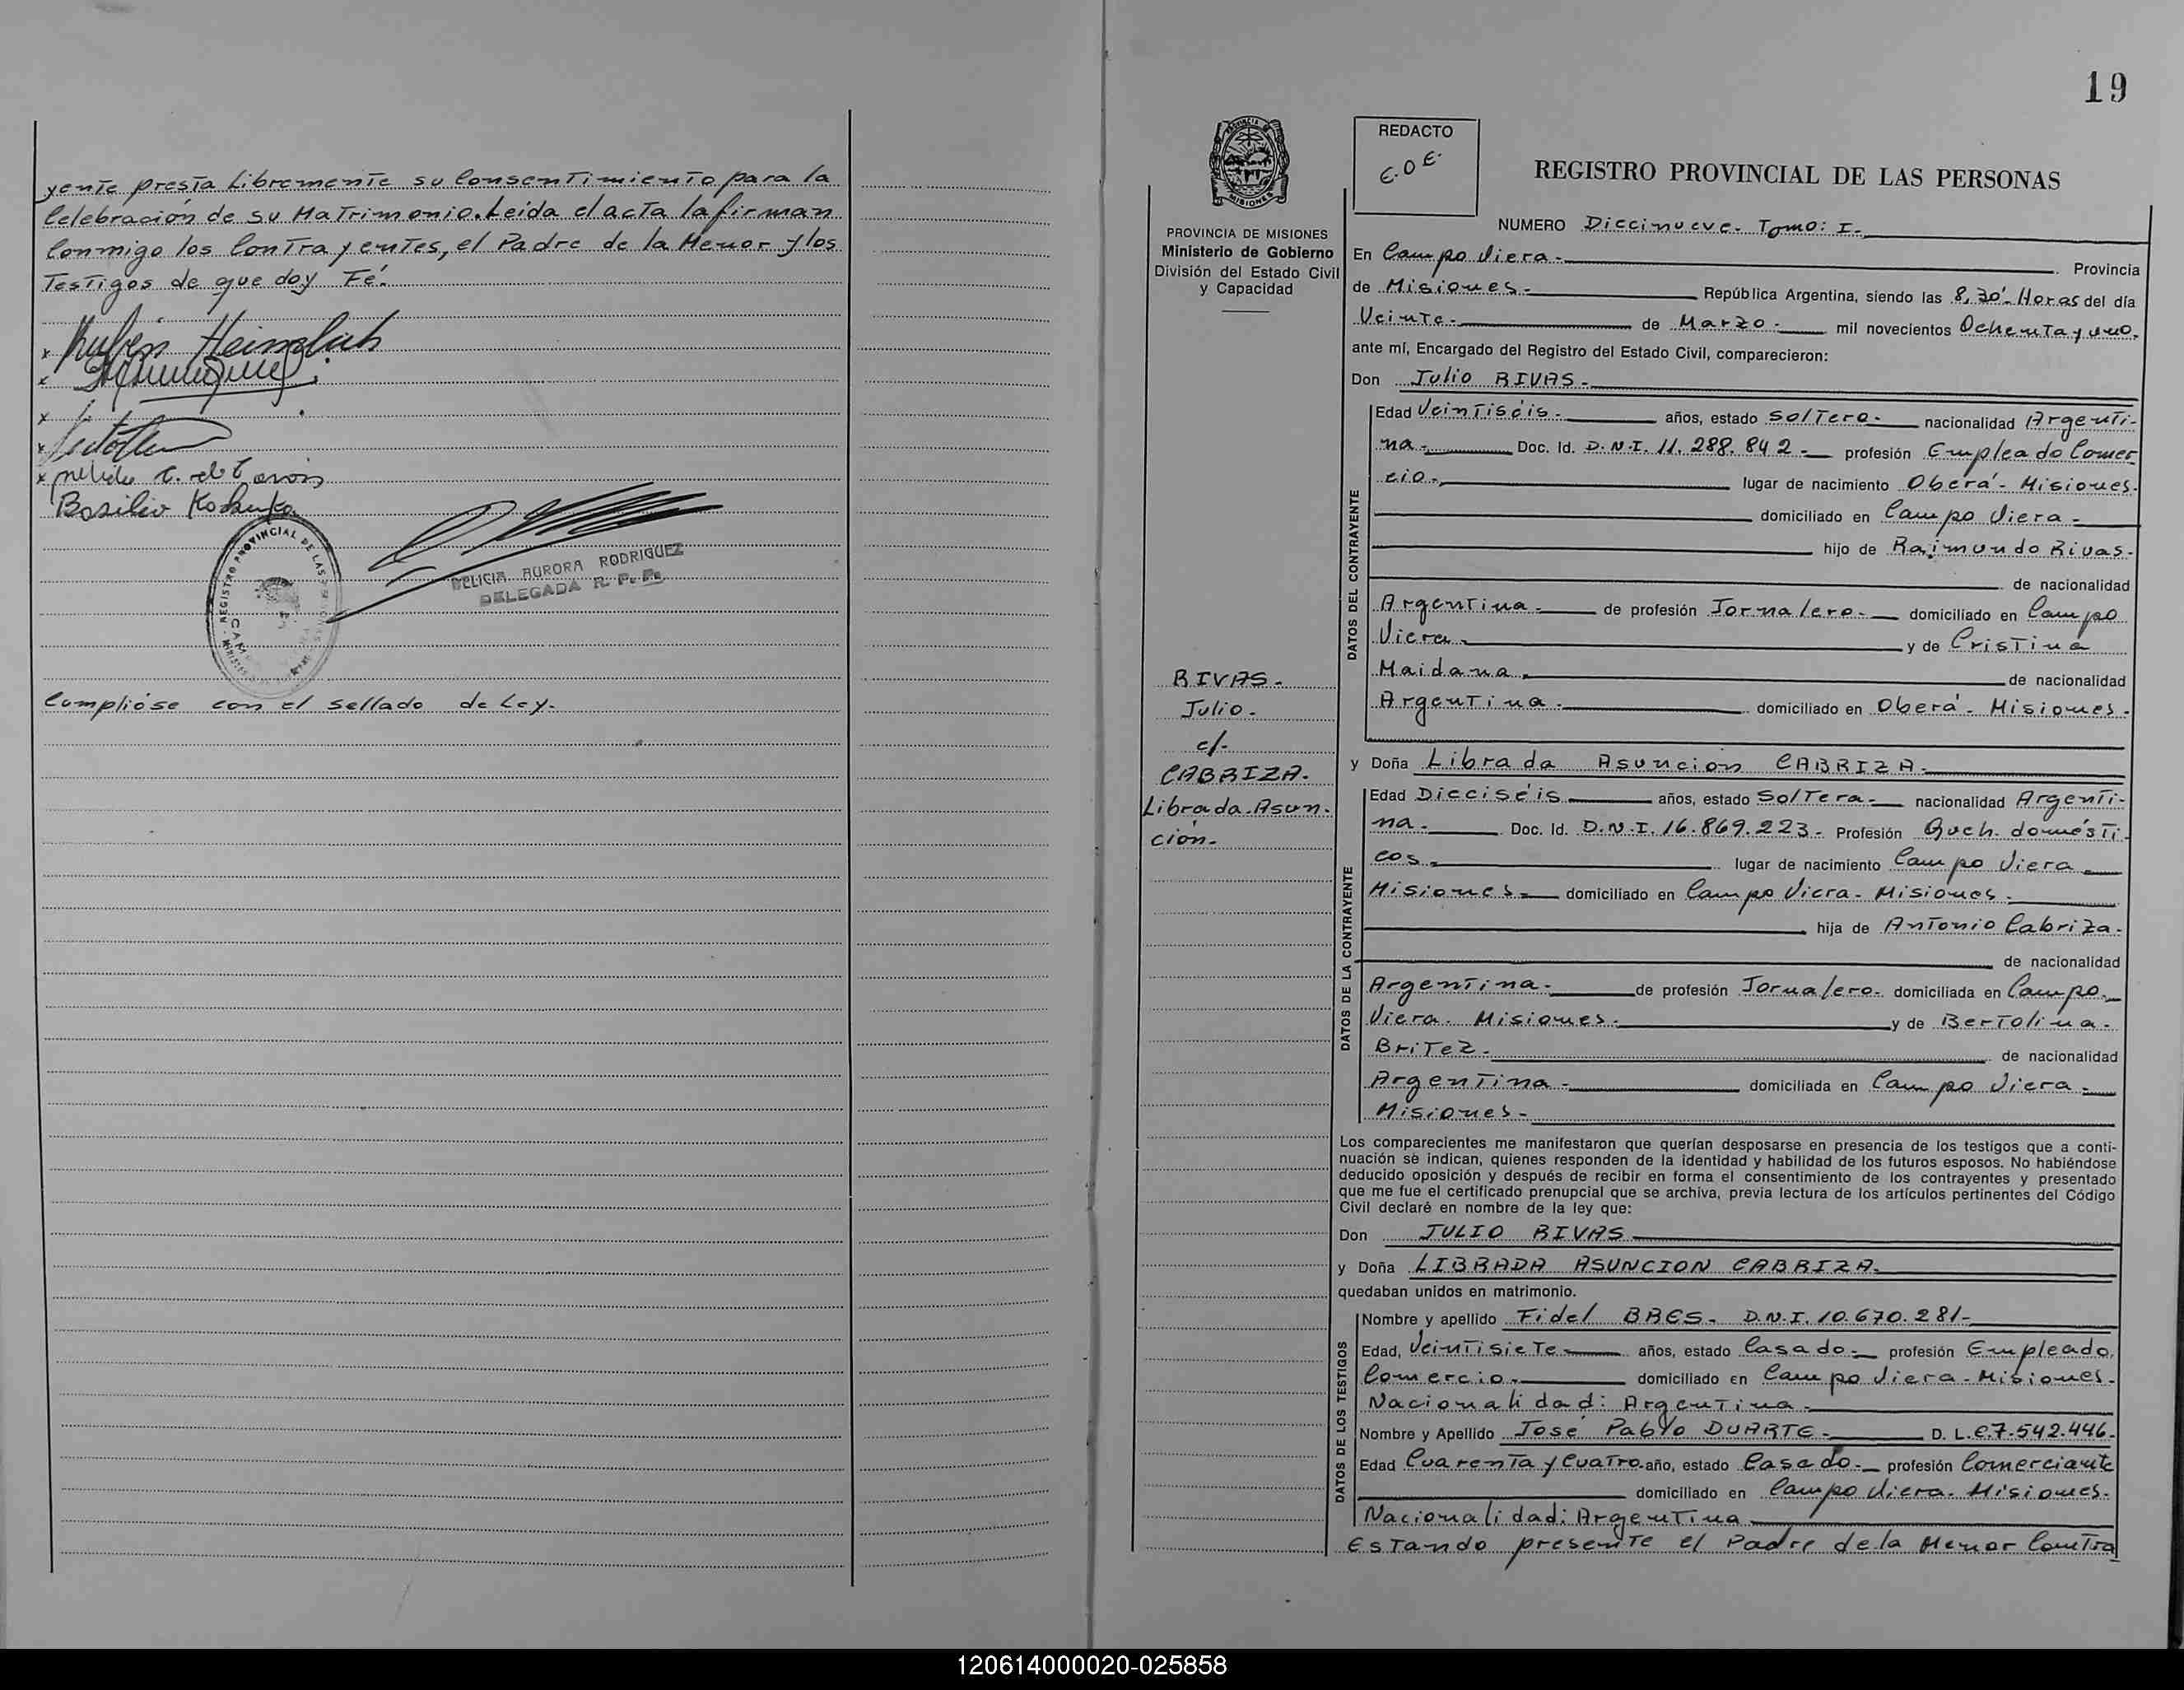 yente presta Libremente su Consentimiento para la
Celebración de su Matrimonio. Leída el acta la firman
Conmigo los Contrayentes, el Padre de la Menor y los
Testigos de que doy Fé.
x Rubén Heimlich
x
x
x
x de
Basilio
REGISTRO PROVINCIAL DE LAS
DELICIA AURORA RODRIGUEZ
DELEGADA R. P. P.
Cumplióse con el sellado de Ley.
19
PROVINCIA DE MISIONES
Ministerio de Gobierno
División del Estado Civil
y Capacidad
RIVAS.-
Julio.-
c/-
CABRIZA.-
Librada Asun-
ción.-
REDACTO
E.O.E.
REGISTRO PROVINCIAL DE LAS PERSONAS
NUMERO Diecinueve.- Tomo: I.-
En Campo Viera.- Provincia
de Misiones.- República Argentina, siendo las 8,30'- Horas del día
Veinte.- de Marzo.- mil novecientos Ochenta y uno.
ante mí, Encargado del Registro del Estado Civil, comparecieron:
Don Julio RIVAS.-
DATOS DEL CONTRAYENTE
Edad Veintiséis.- años, estado Soltero.- nacionalidad Argenti-
na.- Doc. Id. D.N.I. 11.288.842.- profesión Empleado Comer
cio.- lugar de nacimiento Oberá- Misiones.
domiciliado en Campo Viera.-
hijo de Raimundo Rivas.-
de nacionalidad
Argentina.- de profesión Jornalero.- domiciliado en Campo
Viera.- y de Cristina
Maidana.- de nacionalidad
Argentina.- domiciliado en Oberá- Misiones.-
y Doña Librada Asunción CABRIZA.-
DATOS DE LA CONTRAYENTE
Edad Dieciséis.- años, estado Soltera.- nacionalidad Argenti-
na.- Doc. Id. D.N.I. 16.869.223.- Profesión Queh. domésti-
cos.- lugar de nacimiento Campo Viera
Misiones.- domiciliado en Campo Viera- Misiones.-
hija de Antonio Cabriza.-
de nacionalidad
Argentina.- de profesión Jornalero.- domiciliada en Campo
Viera. Misiones.- y de Bertolina.
Britez.- de nacionalidad
Argentina.- domiciliada en Campo Viera.-
Misiones.-
Los comparecientes me manifestaron que querían desposarse en presencia de los testigos que a conti-
nuación se indican, quienes responden de la identidad y habilidad de los futuros esposos. No habiéndose
deducido oposición y después de recibir en forma el consentimiento de los contrayentes y presentado
que me fue el certificado prenupcial que se archiva, previa lectura de los artículos pertinentes del Código
Civil declaré en nombre de la ley que:
Don JULIO RIVAS
y Doña LIBRADA ASUNCION CABRIZA.-
quedaban unidos en matrimonio.
DATOS DE LOS TESTIGOS
Nombre y apellido Fidel BRES.- D.N.I. 10.670.281-
Edad, Veintisiete.- años, estado Casado.- profesión Empleado
Comercio.- domiciliado en Campo Viera-Misiones.-
Nacionalidad: Argentina.-
Nombre y Apellido José Pablo DUARTE.- D. L.E.7.542.446.
Edad Cuarenta y Cuatro. año, estado Casado.- profesión Comerciante
domiciliado en Campo Viera. Misiones.-
Nacionalidad: Argentina
Estando presente el Padre de la Menor Contra
120614000020-025858